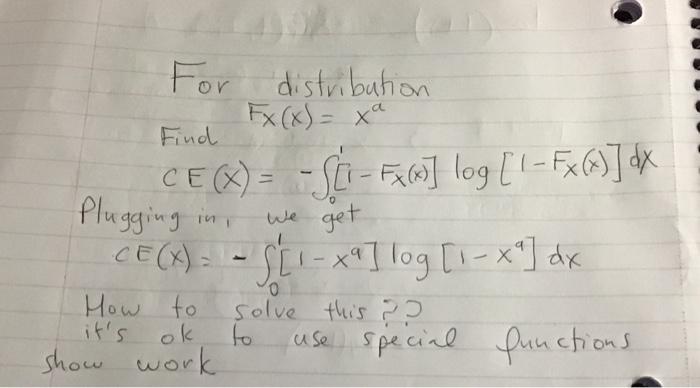 For distribution
Fx(x) = x^a
Find
CE(X) = -∫₀¹[1 - Fx(x)] log [1 - Fx(x)] dx
Plugging in, we get
CE(X) = - ∫₀¹[1 - x^a] log [1 - x^a] dx
How to solve this ??
it's ok to use special functions
show work